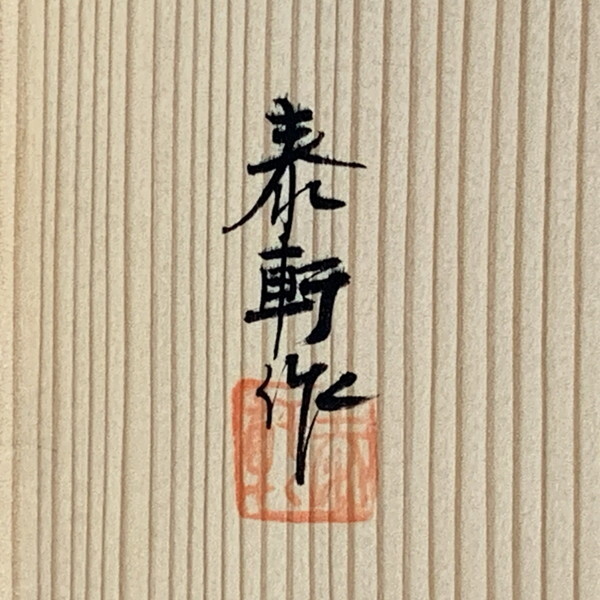 泰軒作